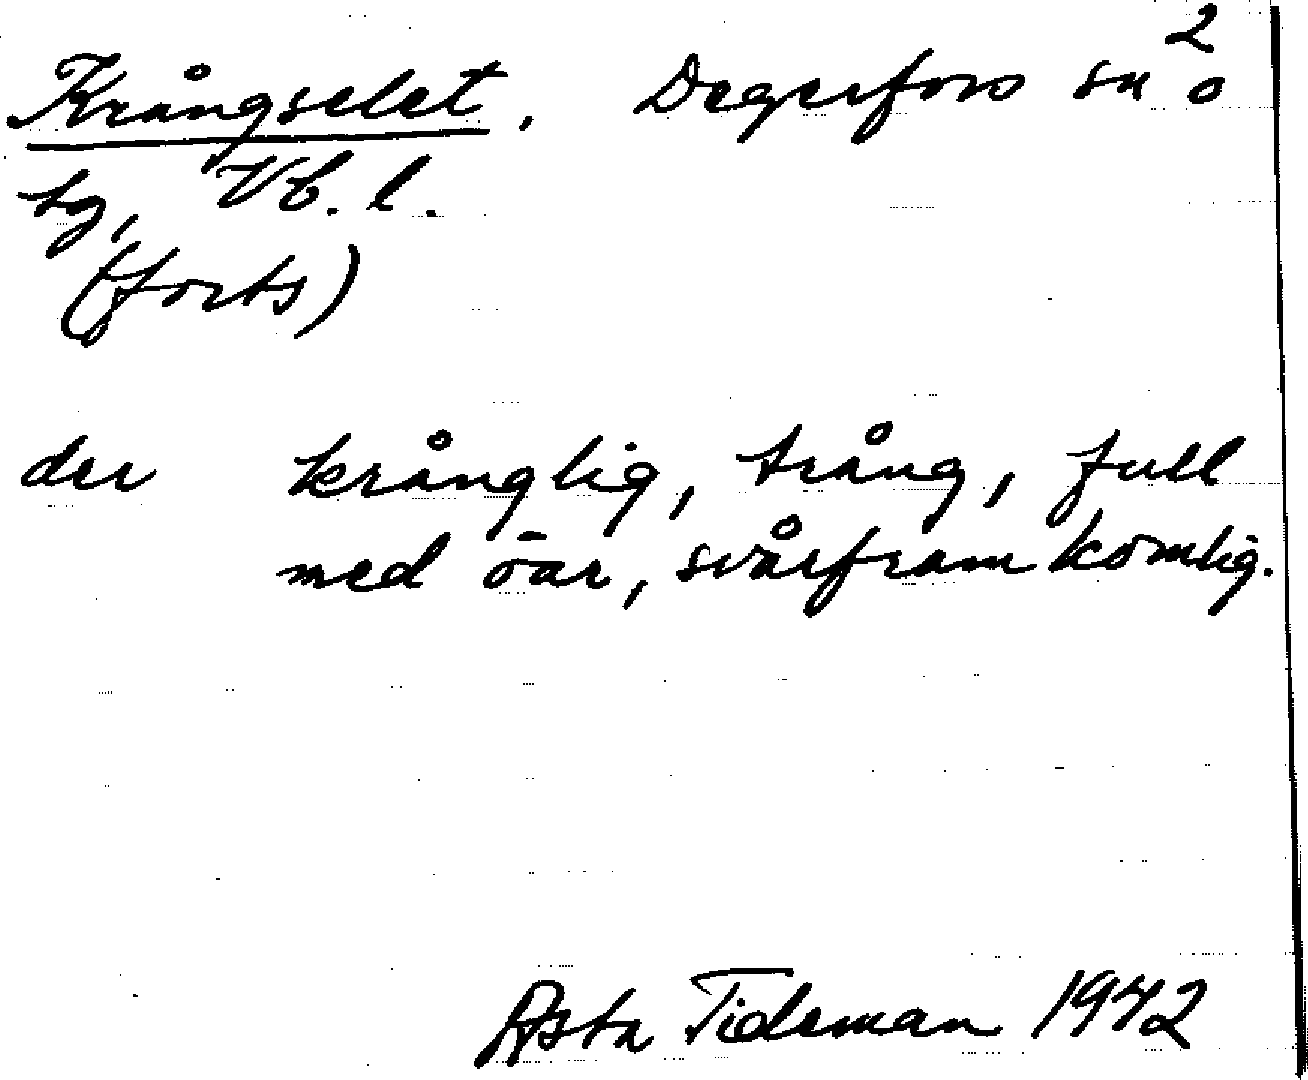 2
Krångselet, Degerfors sn o
tg, Vb. l.
(forts)
der krånglig, trång, full
med öar, svårframkomlig.
Asta Tideman 1942